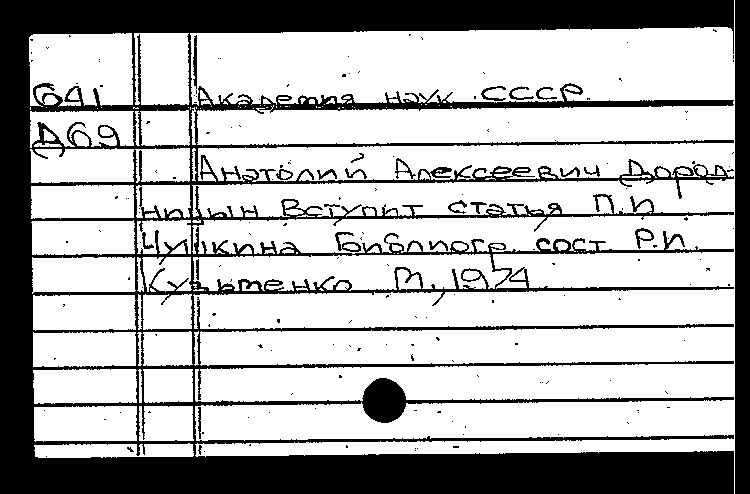 641 Академия наук СССР
Д69
Анатолий Алексеевич Дород-
ницын Вступит статья П.И
Чушкина Библиогр. сост Р.И.
Кузьменко М., 1974